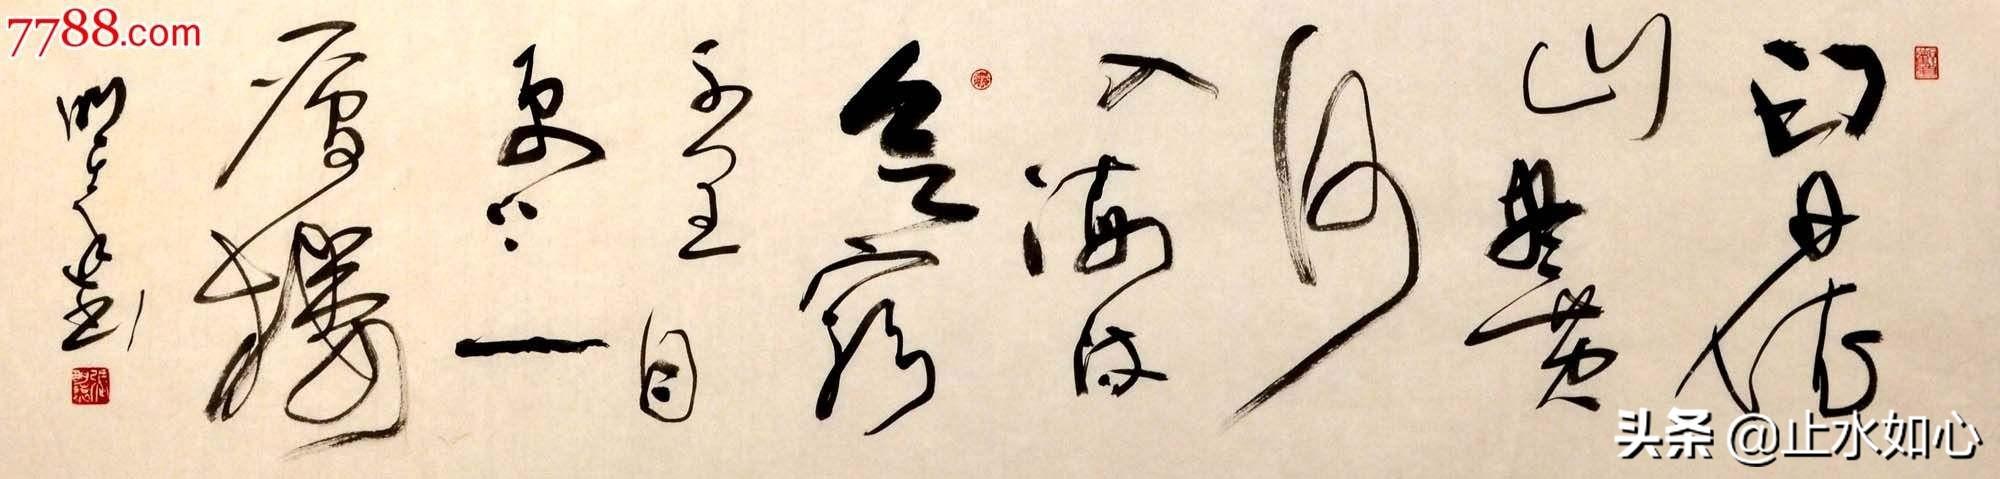 白日依
山盡黄
河
入海流
欲窮
千里目
更上一
層樓
7788.com
头条 @止水如心